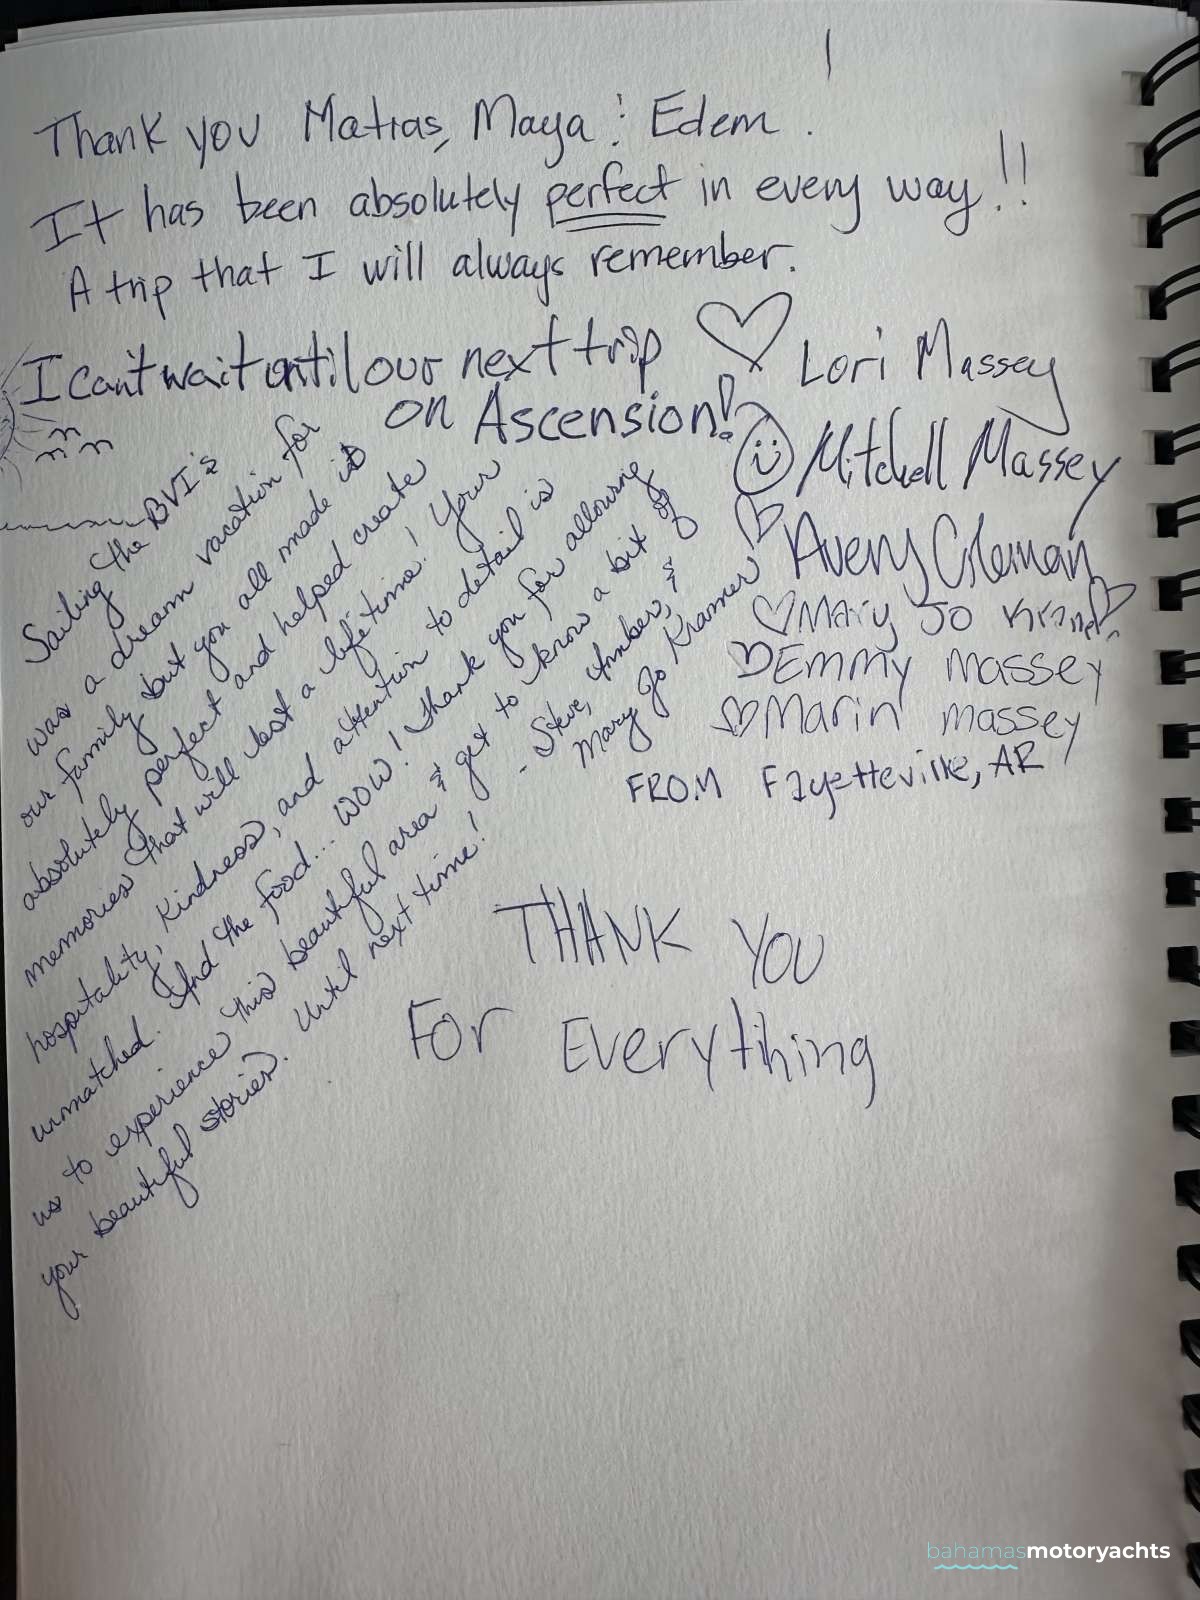 Thank you Matias, Maya & Edem!
It has been absolutely perfect in every way!!
A trip that I will always remember.
I can't wait until our next trip
on Ascension!
Lori Massey
Mitchell Massey
Avery Coleman
Mary Jo Kramer
Emmy Massey
Marin Massey
FROM Fayetteville, AR
Sailing the BVI's
was a dream vacation for
our family but you all made it
absolutely perfect and helped create
memories that will last a lifetime! Your
hospitality, kindness, and attention to detail is
unmatched. And the food... WOW! Thank you for allowing
us to experience this beautiful area & get to know a bit of
your beautiful stories. Until next time!
- Steve, Amber, &
Mary Jo Kramer
THANK YOU
For Everything
bahamasmotoryachts